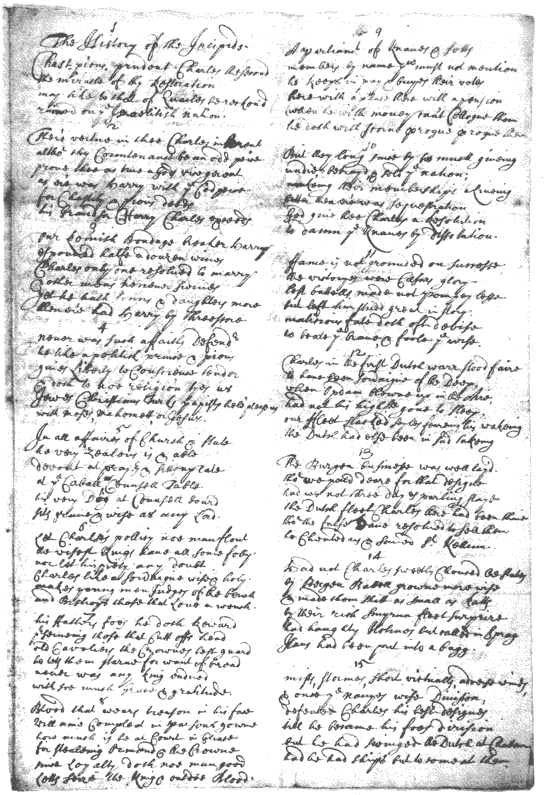 1
The History of the Incipids.
Chast, pious, prudent Charles the Second
the miracle of thy Restoration
may like to that of Quailes be reckond
rained on ye Israelitish nation:
2
Their vertue in thee Charles inherent
altho thy Countenance be an odd peice
prove thee as true a Gods vicegerent
as ere was Harry with
for Chastity & pious deeds
his Grandsir Harry Charles exceeds
3
our Romish bondage breaker Harry
espoused halfe a dozen wives
Charles only one resolved to marry
& other mens he never
yet he hath sonns & daughters more
then ere had Harry by threescore
4
never was such a faith's Defendr
he like a politick prince & pious
gives liberty to Conscience tender
& doth to noe religion tye us
Jewes Christians Turks papists
with moses mahomett or Jesus.
5
In all affaires of Church & State
he very zealous is & able
devout at prayrs & sitts up late
at ye Caball & Counsell Table
his very Dog at Counsell board
sits grave & wise as any Lord.
6
Let Charles's pollicy noe man flout
the wisest Kings have all some folly
nor let his piety any doubt
Charles like a soveraigne wise & holy
makes young men Judges of the bench
and Bishops those that Love a wench.
7
his Fathers foes he doth Reward
preserving those that cutt off head
old Cavaliers the Crownes best guard
he lets them starve for want of bread
never was any King endued
with soe much grace & gratitude.
8
Blood that weares treason in his face
villaine Compleat in parsons gowne
how much is he at Court in Grace
for stealeing Ormond & the Crowne
since Loyalty doth noe man good
Letts steale the King & outdoe Blood.
9
A parliament of Knaves & sotts
members by name you must not mention
he keeps in pay & buyes their votes
here with a place there with a pension
when he with money can't Collogue them
he doth with scorne prorogue prorogue them
But they long since by too much giveing
undid betrayd & sold ye nation;
makeing their memberships a liveing
better then ere was sequestration
God give thee Charles a Resolution
to damne ye knaves by dissolution.
Fame is not grounded on successe
tho victoryes were Cæsars glory
lost battells made not Pompey lesse
but left him stiled great in story
malitious fate doth oft devise
to beate ye brave & foole ye wise.
12
Charles in the first Dutch warr stood faire
to have been soveraigne of the Deep
when Opdam blowne up in the aire
had not his highnesse gone to sleep
our fleet slackd sailes feareing his wakeing
the Dutch had else been in sad takeing
13
The Bergen businesse was well layd.
tho we paid deare for that designe
had we not three days parling stayd
the Dutch fleet Charles there had been thine
tho the false Dane resolved to sell them
he cheated us & saved
14
Had not Charles sweetly choused the states
by Bergen Battell growne more wise
& made them shitt as small as Ratts
by their rich Smyrna fleet surprize
had haughty Holmes but called in Spragg
Hans had been put into a bagg.
15
mists, stormes, short victualls, adverse winds,
& once ye navyes wise Division
defeated Charles his best designes
till he became his foes derision
but he had swinged the Dutch at Chatam
had he had ships but to come at them.